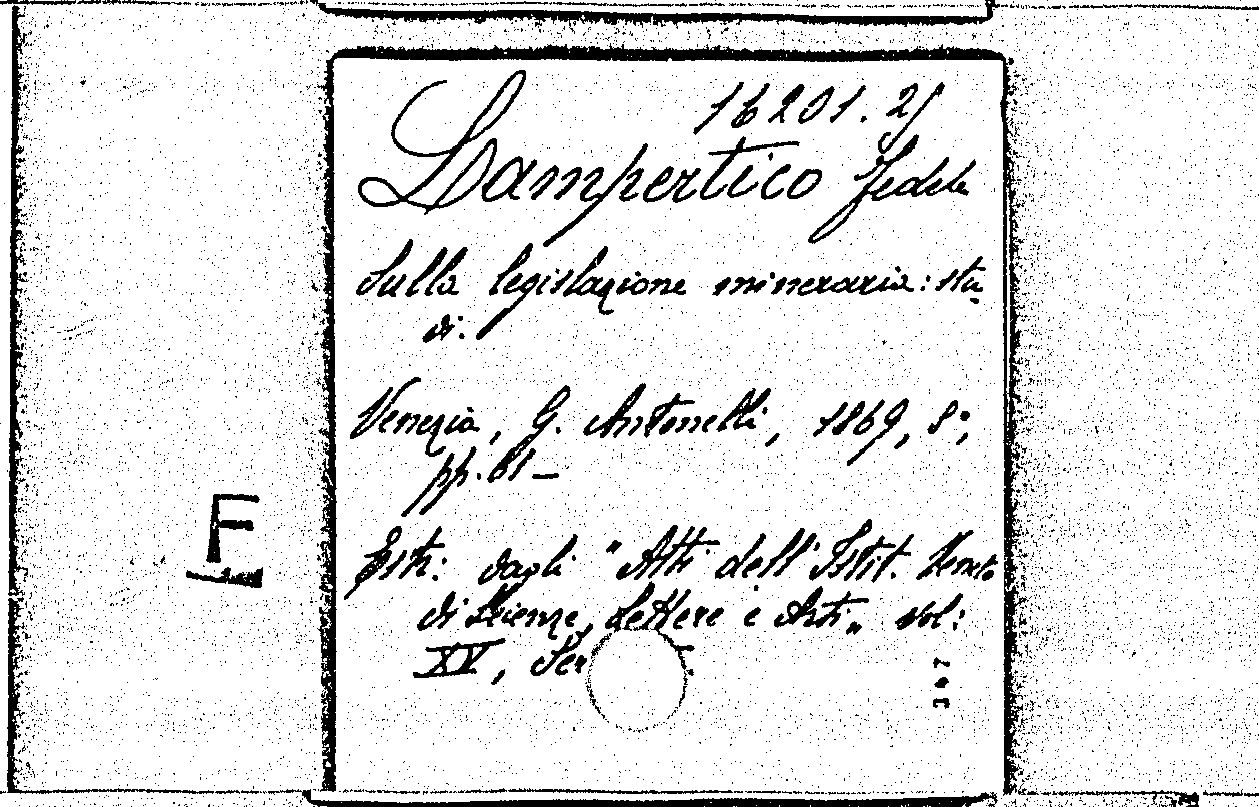 16201.25
Lampertico Fedele
Sulla legislazione mineraria: stu-
di.
Venezia, G. Antonelli, 1869, 8°,
pp. 61 –
Estr: dagli "Atti dell'Istit. Veneto
di Scienze, Lettere e Arti„ vol:
XV, Ser
F